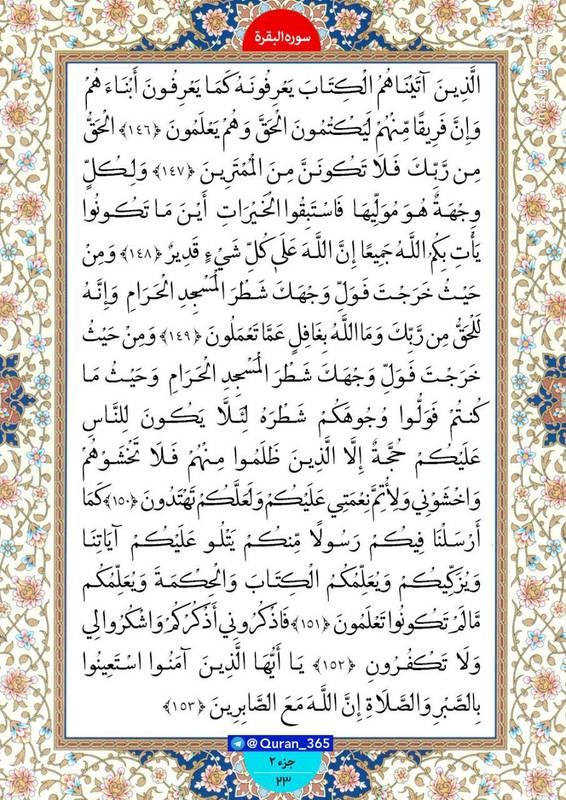 سورة البقرة
الَّذِينَ آتَيْنَاهُمُ الْكِتَابَ يَعْرِفُونَهُ كَمَا يَعْرِفُونَ أَبْنَاءَهُمْ
وَإِنَّ فَرِيقًا مِنْهُمْ لَيَكْتُمُونَ الْحَقَّ وَهُمْ يَعْلَمُونَ ﴿١٤٦﴾ الْحَقُّ
مِن رَّبِّكَ فَلَا تَكُونَنَّ مِنَ الْمُمْتَرِينَ ﴿١٤٧﴾ وَلِكُلٍّ
وِجْهَةٌ هُوَ مُوَلِّيهَا فَاسْتَبِقُوا الْخَيْرَاتِ أَيْنَ مَا تَكُونُوا
يَأْتِ بِكُمُ اللَّهُ جَمِيعًا إِنَّ اللَّهَ عَلَىٰ كُلِّ شَيْءٍ قَدِيرٌ ﴿١٤٨﴾ وَمِنْ
حَيْثُ خَرَجْتَ فَوَلِّ وَجْهَكَ شَطْرَ الْمَسْجِدِ الْحَرَامِ وَإِنَّهُ
لَلْحَقُّ مِن رَّبِّكَ وَمَا اللَّهُ بِغَافِلٍ عَمَّا تَعْمَلُونَ ﴿١٤٩﴾ وَمِنْ حَيْثُ
خَرَجْتَ فَوَلِّ وَجْهَكَ شَطْرَ الْمَسْجِدِ الْحَرَامِ وَحَيْثُ مَا
كُنتُمْ فَوَلُّوا وُجُوهَكُمْ شَطْرَهُ لِئَلَّا يَكُونَ لِلنَّاسِ
عَلَيْكُمْ حُجَّةٌ إِلَّا الَّذِينَ ظَلَمُوا مِنْهُمْ فَلَا تَخْشَوْهُمْ
وَاخْشَوْنِي وَلِأُتِمَّ نِعْمَتِي عَلَيْكُمْ وَلَعَلَّكُمْ تَهْتَدُونَ ﴿١٥٠﴾ كَمَا
أَرْسَلْنَا فِيكُمْ رَسُولًا مِّنكُمْ يَتْلُو عَلَيْكُمْ آيَاتِنَا
وَيُزَكِّيكُمْ وَيُعَلِّمُكُمُ الْكِتَابَ وَالْحِكْمَةَ وَيُعَلِّمُكُم
مَّا لَمْ تَكُونُوا تَعْلَمُونَ ﴿١٥١﴾ فَاذْكُرُونِي أَذْكُرْكُمْ وَاشْكُرُوا لِي
وَلَا تَكْفُرُونِ ﴿١٥٢﴾ يَا أَيُّهَا الَّذِينَ آمَنُوا اسْتَعِينُوا
بِالصَّبْرِ وَالصَّلَاةِ إِنَّ اللَّهَ مَعَ الصَّابِرِينَ ﴿١٥٣﴾
@Quran_365
جزء ٢
٢٣